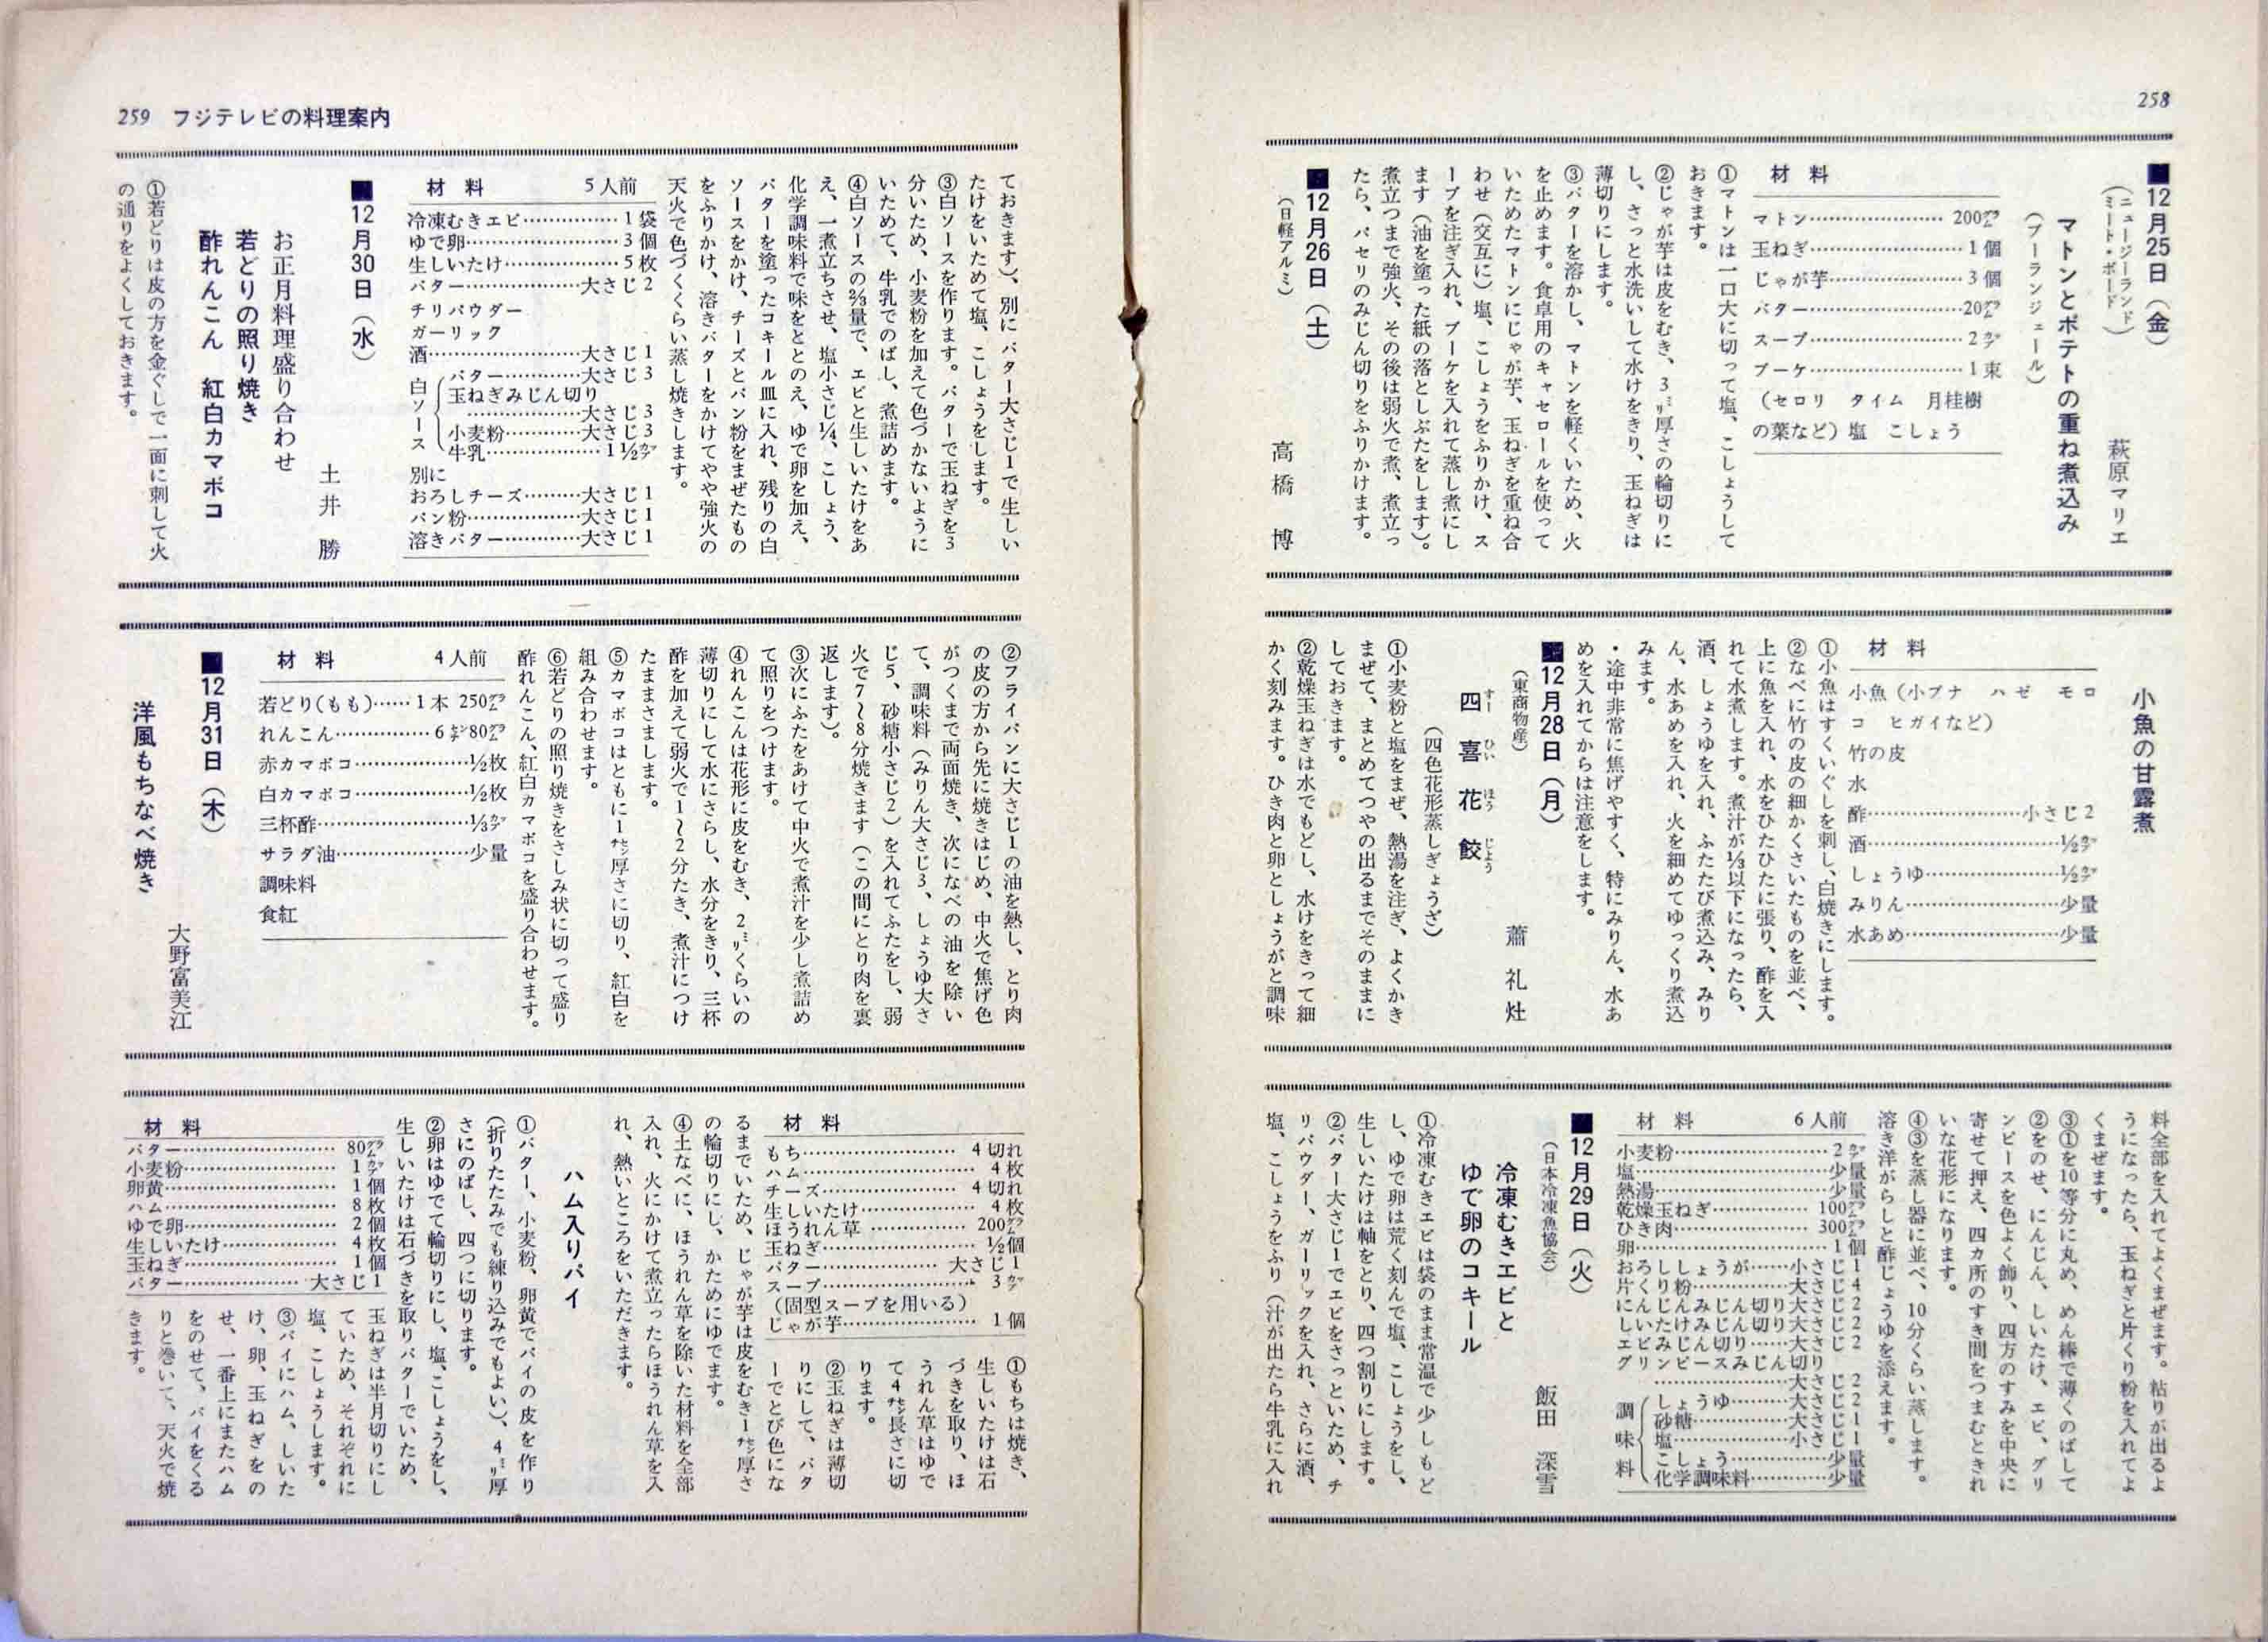 258
■12月25日（金）
（ニュージーランド
ミート・ボード）
萩原マリエ
マトンとポテトの重ね煮込み
（ブーランジェール）
材料
マトン……………… 200㌘
玉ねぎ……………… 1個
じゃが芋……………… 3個
バター……………… 20㌘
スープ……………… 2㌍
ブーケ……………… 1束
（セロリ　タイム　月桂樹
の葉など）塩　こしょう
①マトンは一口大に切って塩、こしょうして
おきます。
②じゃが芋は皮をむき、3㍉厚さの輪切りに
し、さっと水洗いして水けをきり、玉ねぎは
薄切りにします。
③バターを溶かし、マトンを軽くいため、火
を止めます。食卓用のキャセロールを使って
いためたマトンにじゃが芋、玉ねぎを重ね合
わせ（交互に）塩、こしょうをふりかけ、ス
ープを注ぎ入れ、ブーケを入れて蒸し煮にし
ます（油を塗った紙の落としぶたをします）。
煮立つまで強火、その後は弱火で煮、煮立っ
たら、パセリのみじん切りをふりかけます。
■12月26日（土）
（日軽アルミ）
高橋　博
小魚の甘露煮
材料
小魚（小ブナ　ハゼ　モロ
コ　ヒガイなど）
竹の皮
水
酢………………小さじ2
酒………………½㌍
しょうゆ………………½㌍
みりん………………少量
水あめ………………少量
①小魚はすくいぐしを刺し、白焼きにします。
②なべに竹の皮の細かくさいたものを並べ、
上に魚を入れ、水をひたひたに張り、酢を入
れて水煮します。煮汁が⅓以下になったら、
酒、しょうゆを入れ、ふたたび煮込み、みり
ん、水あめを入れ、火を細めてゆっくり煮込
みます。
・途中非常に焦げやすく、特にみりん、水あ
めを入れてからは注意をします。
■12月28日（月）
（東商物産）
蕭礼灶
四喜花餃
すーひいほうじょう
（四色花形蒸しぎょうざ）
①小麦粉と塩をまぜ、熱湯を注ぎ、よくかき
まぜて、まとめてつやの出るまでそのままに
しておきます。
②乾燥玉ねぎは水でもどし、水けをきって細
かく刻みます。ひき肉と卵としょうがと調味
料全部を入れてよくまぜます。粘りが出るよ
うになったら、玉ねぎと片くり粉を入れてよ
くまぜます。
③①を10等分に丸め、めん棒で薄くのばして
②をのせ、にんじん、しいたけ、エビ、グリ
ンピースを色よく飾り、四方のすみを中央に
寄せて押え、四カ所のすき間をつまむときれ
いな花形になります。
④③を蒸し器に並べ、10分くらい蒸します。
溶き洋がらしと酢じょうゆを添えます。
材料　6人前
小麦粉………………2㌍
塩………………少量
熱湯………………少量
乾燥玉ねぎ………………100㌘
ひき肉………………300㌘
卵………………1個
おろししょうが………小さじ1
片くり粉………大さじ4
にんじんみじん切り……大さじ2
しいたけみじん切り……大さじ2
エビみじん切り……大さじ2
グリンピースみじん切り
………………大さじ2
調味料
しょうゆ………大さじ2
砂糖………大さじ1
塩………小さじ1
こしょう………少量
化学調味料………少量
■12月29日（火）
（日本冷凍魚協会）
飯田　深雪
冷凍むきエビと
ゆで卵のコキール
①冷凍むきエビは袋のまま常温で少しもど
し、ゆで卵は荒く刻んで塩、こしょうをし、
生しいたけは軸をとり、四つ割りにします。
②バター大さじ1でエビをさっといため、チ
リパウダー、ガーリックを入れ、さらに酒、
塩、こしょうをふり（汁が出たら牛乳に入れ
259　フジテレビの料理案内
ておきます）、別にバター大さじ1で生しい
たけをいためて塩、こしょうをします。
③白ソースを作ります。バターで玉ねぎを3
分いため、小麦粉を加えて色づかないように
いためて、牛乳でのばし、煮詰めます。
④白ソースの⅔量で、エビと生しいたけをあ
え、一煮立ちさせ、塩小さじ¼、こしょう、
化学調味料で味をととのえ、ゆで卵を加え、
バターを塗ったコキール皿に入れ、残りの白
ソースをかけ、チーズとパン粉をまぜたもの
をふりかけ、溶きバターをかけてやや強火の
天火で色づくくらい蒸し焼きします。
材料　5人前
冷凍むきエビ……………1袋
ゆで卵……………3個
生しいたけ……………5枚
バター……………大さじ2
チリパウダー
ガーリック
酒……………大さじ1
白ソース
バター…………大さじ3
玉ねぎみじん切り
……………大さじ3
小麦粉…………大さじ3
牛乳……………1½㌍
別に
おろしチーズ………大さじ1
パン粉……………大さじ1
溶きバター…………大さじ1
■12月30日（水）
土井　勝
お正月料理盛り合わせ
若どりの照り焼き
酢れんこん　紅白カマボコ
①若どりは皮の方を金ぐしで一面に刺して火
の通りをよくしておきます。
②フライパンに大さじ1の油を熱し、とり肉
の皮の方から先に焼きはじめ、中火で焦げ色
がつくまで両面焼き、次になべの油を除い
て、調味料（みりん大さじ3、しょうゆ大さ
じ5、砂糖小さじ2）を入れてふたをし、弱
火で7～8分焼きます（この間にとり肉を裏
返します）。
③次にふたをあけて中火で煮汁を少し煮詰め
て照りをつけます。
④れんこんは花形に皮をむき、2㍉くらいの
薄切りにして水にさらし、水分をきり、三杯
酢を加えて弱火で1～2分たき、煮汁につけ
たままさまします。
⑤カマボコはともに1㌢厚さに切り、紅白を
組み合わせます。
⑥若どりの照り焼きをさしみ状に切って盛り
酢れんこん、紅白カマボコを盛り合わせます。
材料　4人前
若どり（もも）……1本 250㌘
れんこん……………6㌢80㌘
赤カマボコ………………½枚
白カマボコ………………½枚
三杯酢………………⅓㌍
サラダ油………………少量
調味料
食紅
■12月31日（木）
大野富美江
洋風もちなべ焼き
材料
もち………………4切れ
ハム………………4枚
チーズ………………4切れ
生しいたけ………………4枚
ほうれん草………………200㌘
玉ねぎ………………½個
バター………………大さじ1
スープ………………3㌍
（固型スープを用いる）
じゃが芋………………1個
①もちは焼き、
生しいたけは石
づきを取り、ほ
うれん草はゆで
て4㌢長さに切
ります。
②玉ねぎは薄切
りにして、バタ
ーでとび色にな
るまでいため、じゃが芋は皮をむき1㌢厚さ
の輪切りにし、かためにゆでます。
④土なべに、ほうれん草を除いた材料を全部
入れ、火にかけて煮立ったらほうれん草を入
れ、熱いところをいただきます。
ハム入りパイ
①バター、小麦粉、卵黄でパイの皮を作り
（折りたたみでも練り込みでもよい）、4㍉厚
さにのばし、四つに切ります。
②卵はゆでて輪切りにし、塩、こしょうをし、
生しいたけは石づきを取りバターでいため、
玉ねぎは半月切りにし
ていため、それぞれに
塩、こしょうします。
③パイにハム、しいた
け、卵、玉ねぎをの
せ、一番上にまたハム
をのせて、パイをくる
りと巻いて、天火で焼
きます。
材料
バター………………80㌘
小麦粉………………1㌍
卵黄………………1個
ハム………………8枚
ゆで卵………………2個
生しいたけ………………4枚
玉ねぎ………………1個
バター………………大さじ1